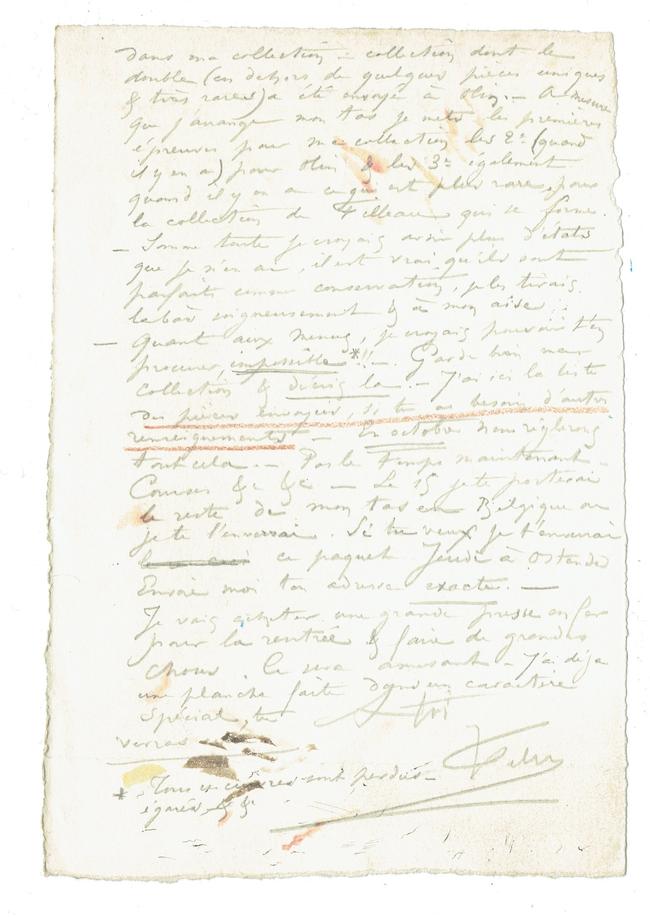 dans ma collection - collection dont le
double (en dehors de quelques pièces uniques
& très rares) a été envoyé à Olin. - A mesure
que j'arrange mon tas je mets les premières
épreuves pour ma collection les 2e (quand
il y en a) pour Olin & les 3e également
quand il y en a ce qui est plus rare, pour
la collection de Filleau qui se forme.
- Somme toute je croyais avoir plus d'états
que je n'en ai, il est vrai qu'ils sont
parfaits comme conservation, je les tirais
là bas soigneusement & à mon aise.
- Quant aux menus, je croyais pouvoir t'en
procurer, impossible*!! - Garde bien mes
collection & décris la. - J'ai ici la liste
des pièces envoyées, si tu as besoin d'autres
renseignements - En octobre nous réglerons
tout cela. - Pas le temps maintenant -
Courses &c &c - Le 15 je te porterai
le reste de mon tas en Belgique ou
je te l'enverrai. Si tu veux je t'enverrai
ce paquet Jeudi à Ostende
Envoie moi ton adresse exacte. -
Je vais acheter une grande presse en fer
pour la rentrée & faire de grandes
choses. Ce sera amusant - J'ai déjà
une planche faite dans un caractère
spécial, tu
verras
* Tous ces cuivres sont perdus -
égarés & &